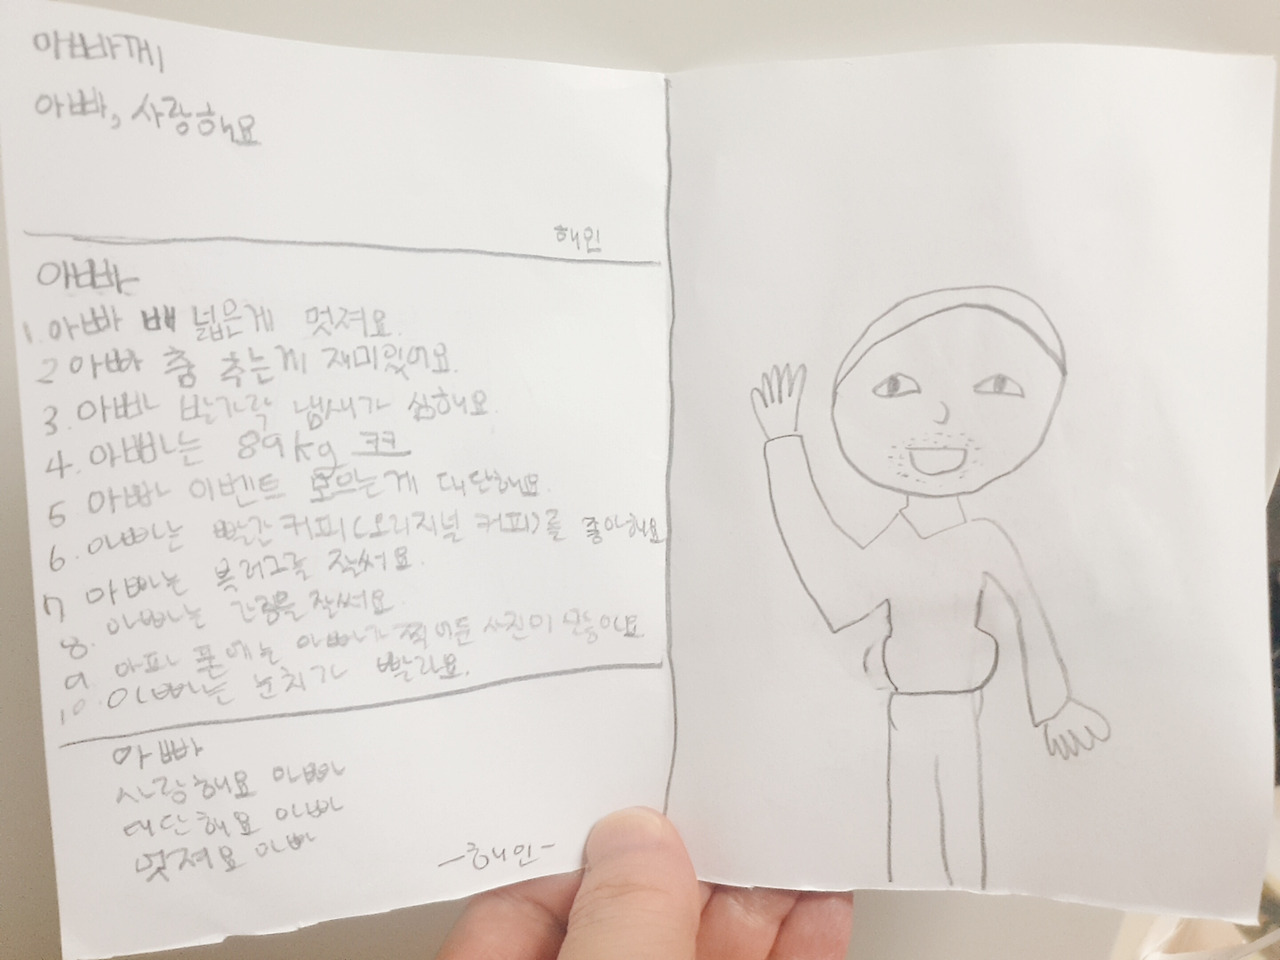 아빠께
아빠, 사랑해요
해인
아빠
1. 아빠 배 넓은게 멋져요.
2 아빠 춤 추는게 재미있어요.
3. 아빠 발가락 냄새가 심해요.
4. 아빠는 89kg ㅋㅋ
5 아빠 이벤트 모으는게 대단해요.
6. 아빠는 빨간커피(오리지널 커피)를 좋아해요
7 아빠는 블러그를 잘써요.
8. 아빠는 잘써요.
9 아빠 폰에는 아빠가 찍어둔 사진이 많아요
10. 아빠는 눈치가 빨라요.
아빠
사랑해요 아빠
대단해요 아빠
멋져요 아빠
-해인-